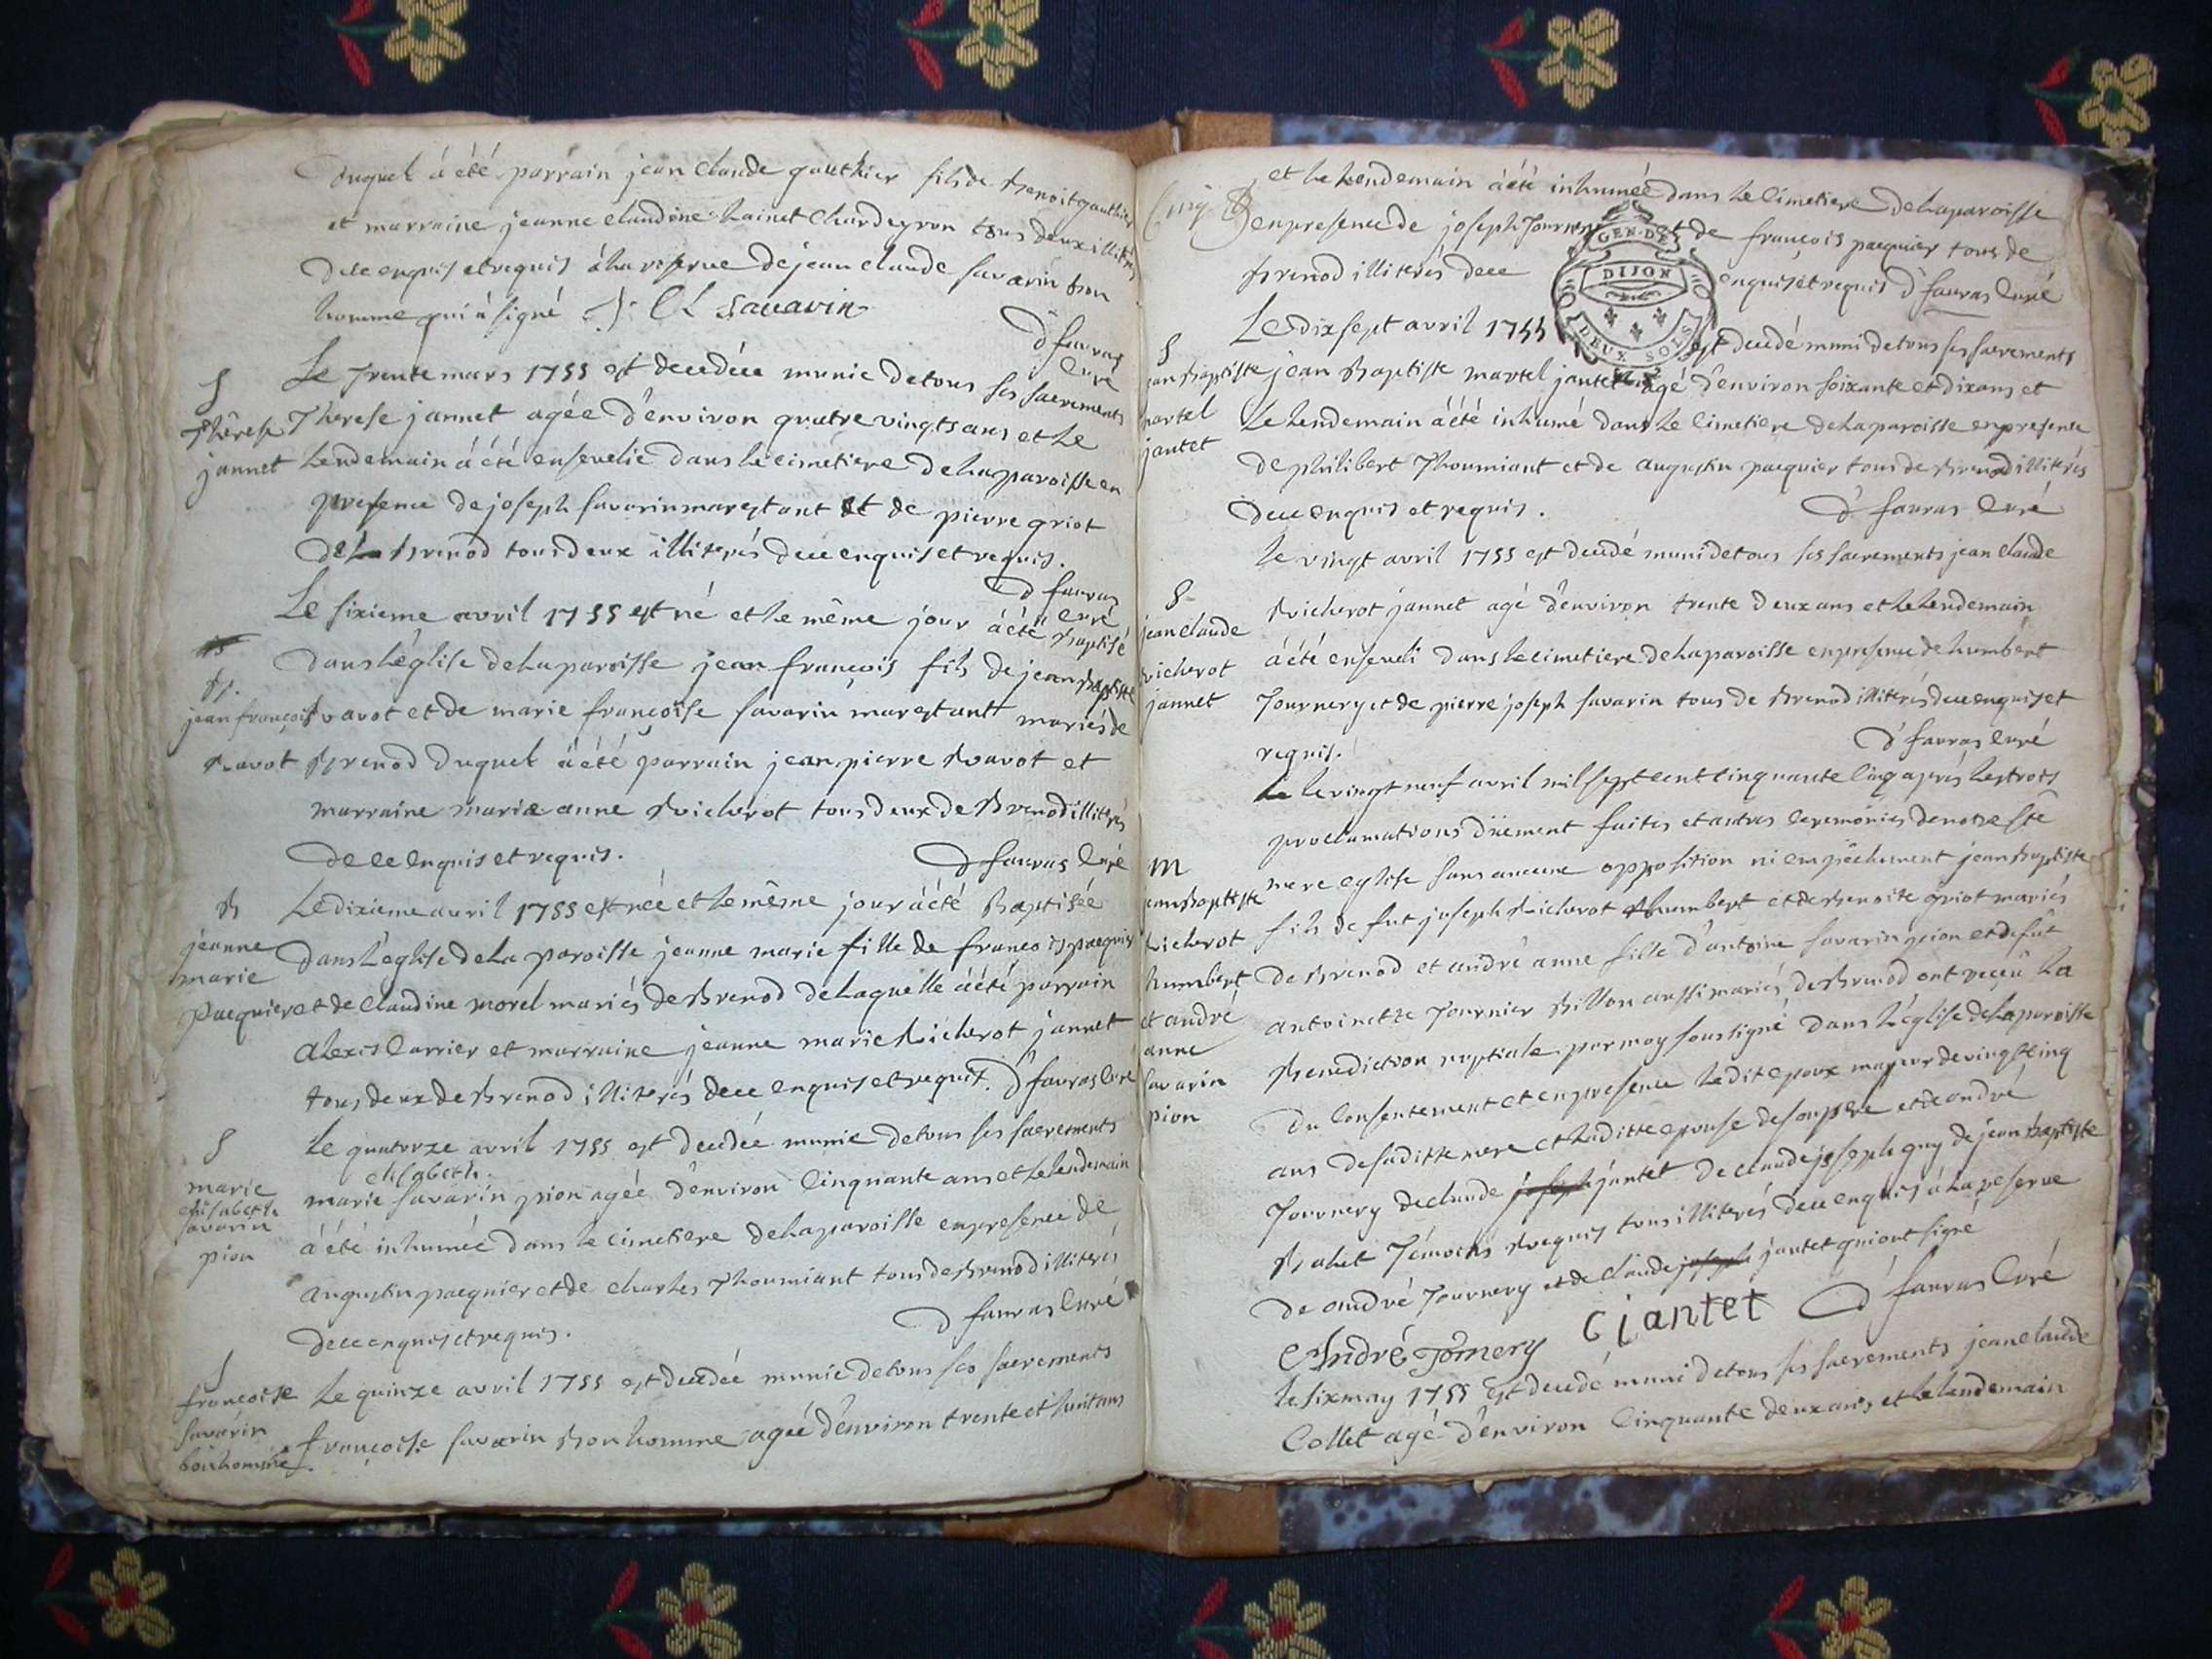 duquel à été parrain jean claude gauthier fils de benoit gauthier
et marraine jeanne claudine hainet chardeyron tous deux illiterés
de ce enquis et requis à la reserve de jean claude savarin bon
homme qui à signé J: Cl savarin
D favras curé
Le trente mars 1755 est decedée munie de tous ses sacrements
S
Thérèse
jannet
Therese jannet agée d'environ quatre vingts ans et le
lendemain à été ensevelie dans le cimetiere de la paroisse en
presence de joseph savarin marestant et de pierre griot
de brenod tous deux illiterés de ce enquis et requis.
D favras curé
Le sixieme avril 1755 est né et le même jour à été baptisé
B.
jean françois
ravot
dans l'église de la paroisse jean françois fils de jean baptiste
ravot et de marie françoise savarin marestant mariés de
Brenod duquel à été parrain jean pierre ravot et
marraine marie anne richerot tous deux de Brenod illiterés
de ce enquis et requis. D favras curé
B
jeanne
marie
pacquier
Le dixieme avril 1755 est née et le même jour à été Baptisée
dans l'eglise de la paroisse jeanne marie fille de françois pacquier
et de claudine morel mariés de Brenod de laquelle à été parrain
alexis carrier et marraine jeanne marie richerot jannet
tous deux de Brenod illiterés de ce enquis et requis. D favras curé
S
marie
elisabeth
savarin
pion
Le quatorze avril 1755 est decedée munie de tous ses sacrements
elisabeth.
marie savarin pion agée d'environ cinquante ans et le lendemain
à été inhumée dans le cimetiere de la paroisse en presence de
augustin pacquier et de charles Thoumiant tous de Brenod illiterés
de ce enquis et requis. D favras curé
S
françoise
savarin
bonhomme
Le quinze avril 1755 est decedée munie de tous ses sacrements
françoise savarin Bonhomme agée d'environ trente et huit ans
et le lendemain à été inhumée dans le cimetiere de la paroisse
Cinq
en presence de joseph Tournery et de françois pacquier tous de
Brenod illiterés de ce enquis et requis D favras curé
GEN. DE
DIJON
DEUX SOLS
Le dix sept avril 1755 est decedé muni de tous ses sacrements
S
jean Baptiste
martel
jantet
jean Baptiste martel jantet agé d'environ soixante et dix ans et
le lendemain à été inhumé dans le cimetiere de la paroisse en presence
de philibert Thoumiant et de augustin pacquier tous de Brenod illiterés
de ce enquis et requis. D favras curé
le vingt avril 1755 est decedé muni de tous ses sacrements jean claude
S
jean claude
richerot
jannet
richerot jannet agé d'environ trente deux ans et le lendemain
à été enseveli dans le cimetiere de la paroisse en presence de humbert
Tournery et de pierre joseph savarin tous de Brenod illiterés de ce enquis et
requis. D favras curé
le vingt neuf avril mil sept cent cinquante cinq aprés les trois
proclamations düement faites et autres ceremonies de notre ste
M
jean baptiste
richerot
humbert
et andré
anne
savarin
pion
mere eglise sans aucune opposition ni empêchement jean baptiste
fils de fut joseph richerot humbert et de Benoite griot mariés
de Brenod et andré anne fille d'antoine savarin pion et de fut
antoinette Tournier Billon aussi mariés de Brenod ont reçeü la
Benediction nuptiale par moy soussigné dans l'église de la paroisse
du consentement et en presence ledit epoux majeur de vingt cinq
ans de saditte mere et laditte epouse de son pere et de andré
Tournery de claude joseph jantet de claude joseph guy de jean baptiste
Balet Témoins requis tous illiterés de ce enquis à la reserve
de andré Tournery et de claude joseph jantet qui ont signé
André Tornery C jantet D favras curé
le six may 1755 est decedé muni de tous ses sacrements jean claude
Collet agé d'environ cinquante deux ans et le lendemain